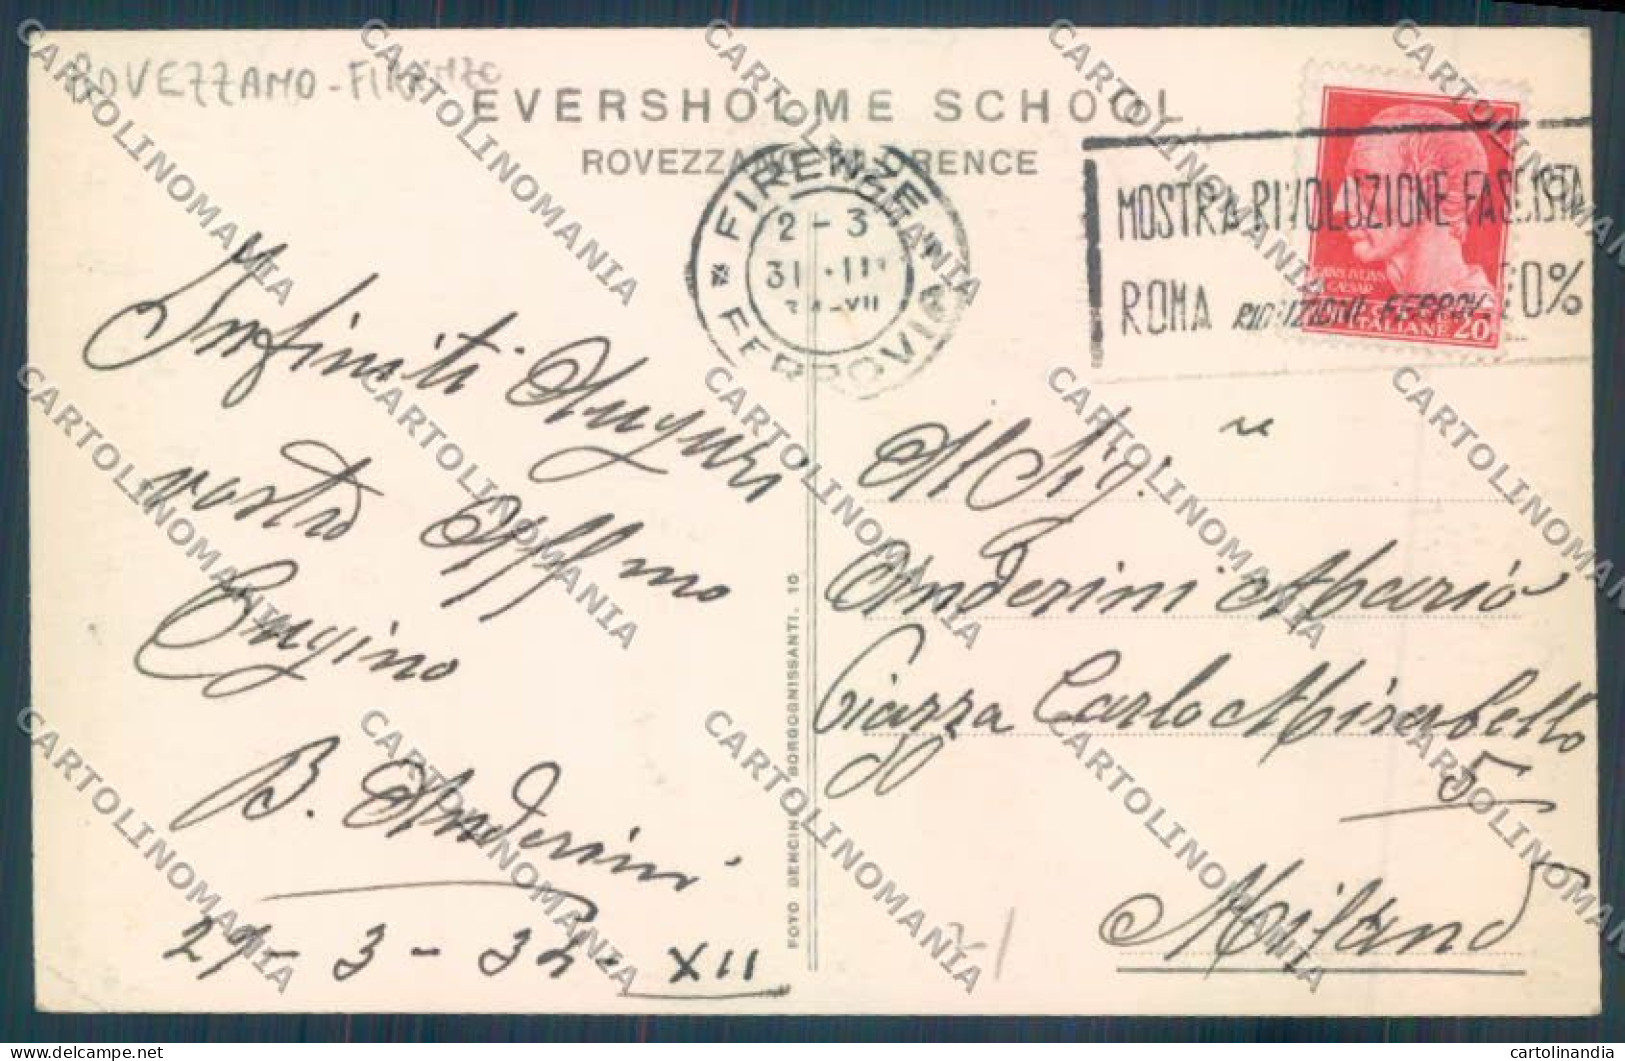 ROVEZZANO - FIRENZE
EVERSHOLME SCHOOL
ROVEZZANO FLORENCE
FIRENZE
2 - 3
31 · III
34 XII
FERROVIA
MOSTRA RIVOLUZIONE FASCISTA
ROMA RIDUZIONE FERROV. 50%
CAESAR
ITALIANE 20
Infiniti Auguri
vostro Aff mo
Cugino
B. Anderini
29 - 3 - 34 - XII
FOTO BENCINI BORGOGNISSANTI. 10
Al Sig.
Anderini Mario
Piazza Carlo Mirabello
5
Milano
CARTOLINOMANIA
delcampe.net
cartolinandia